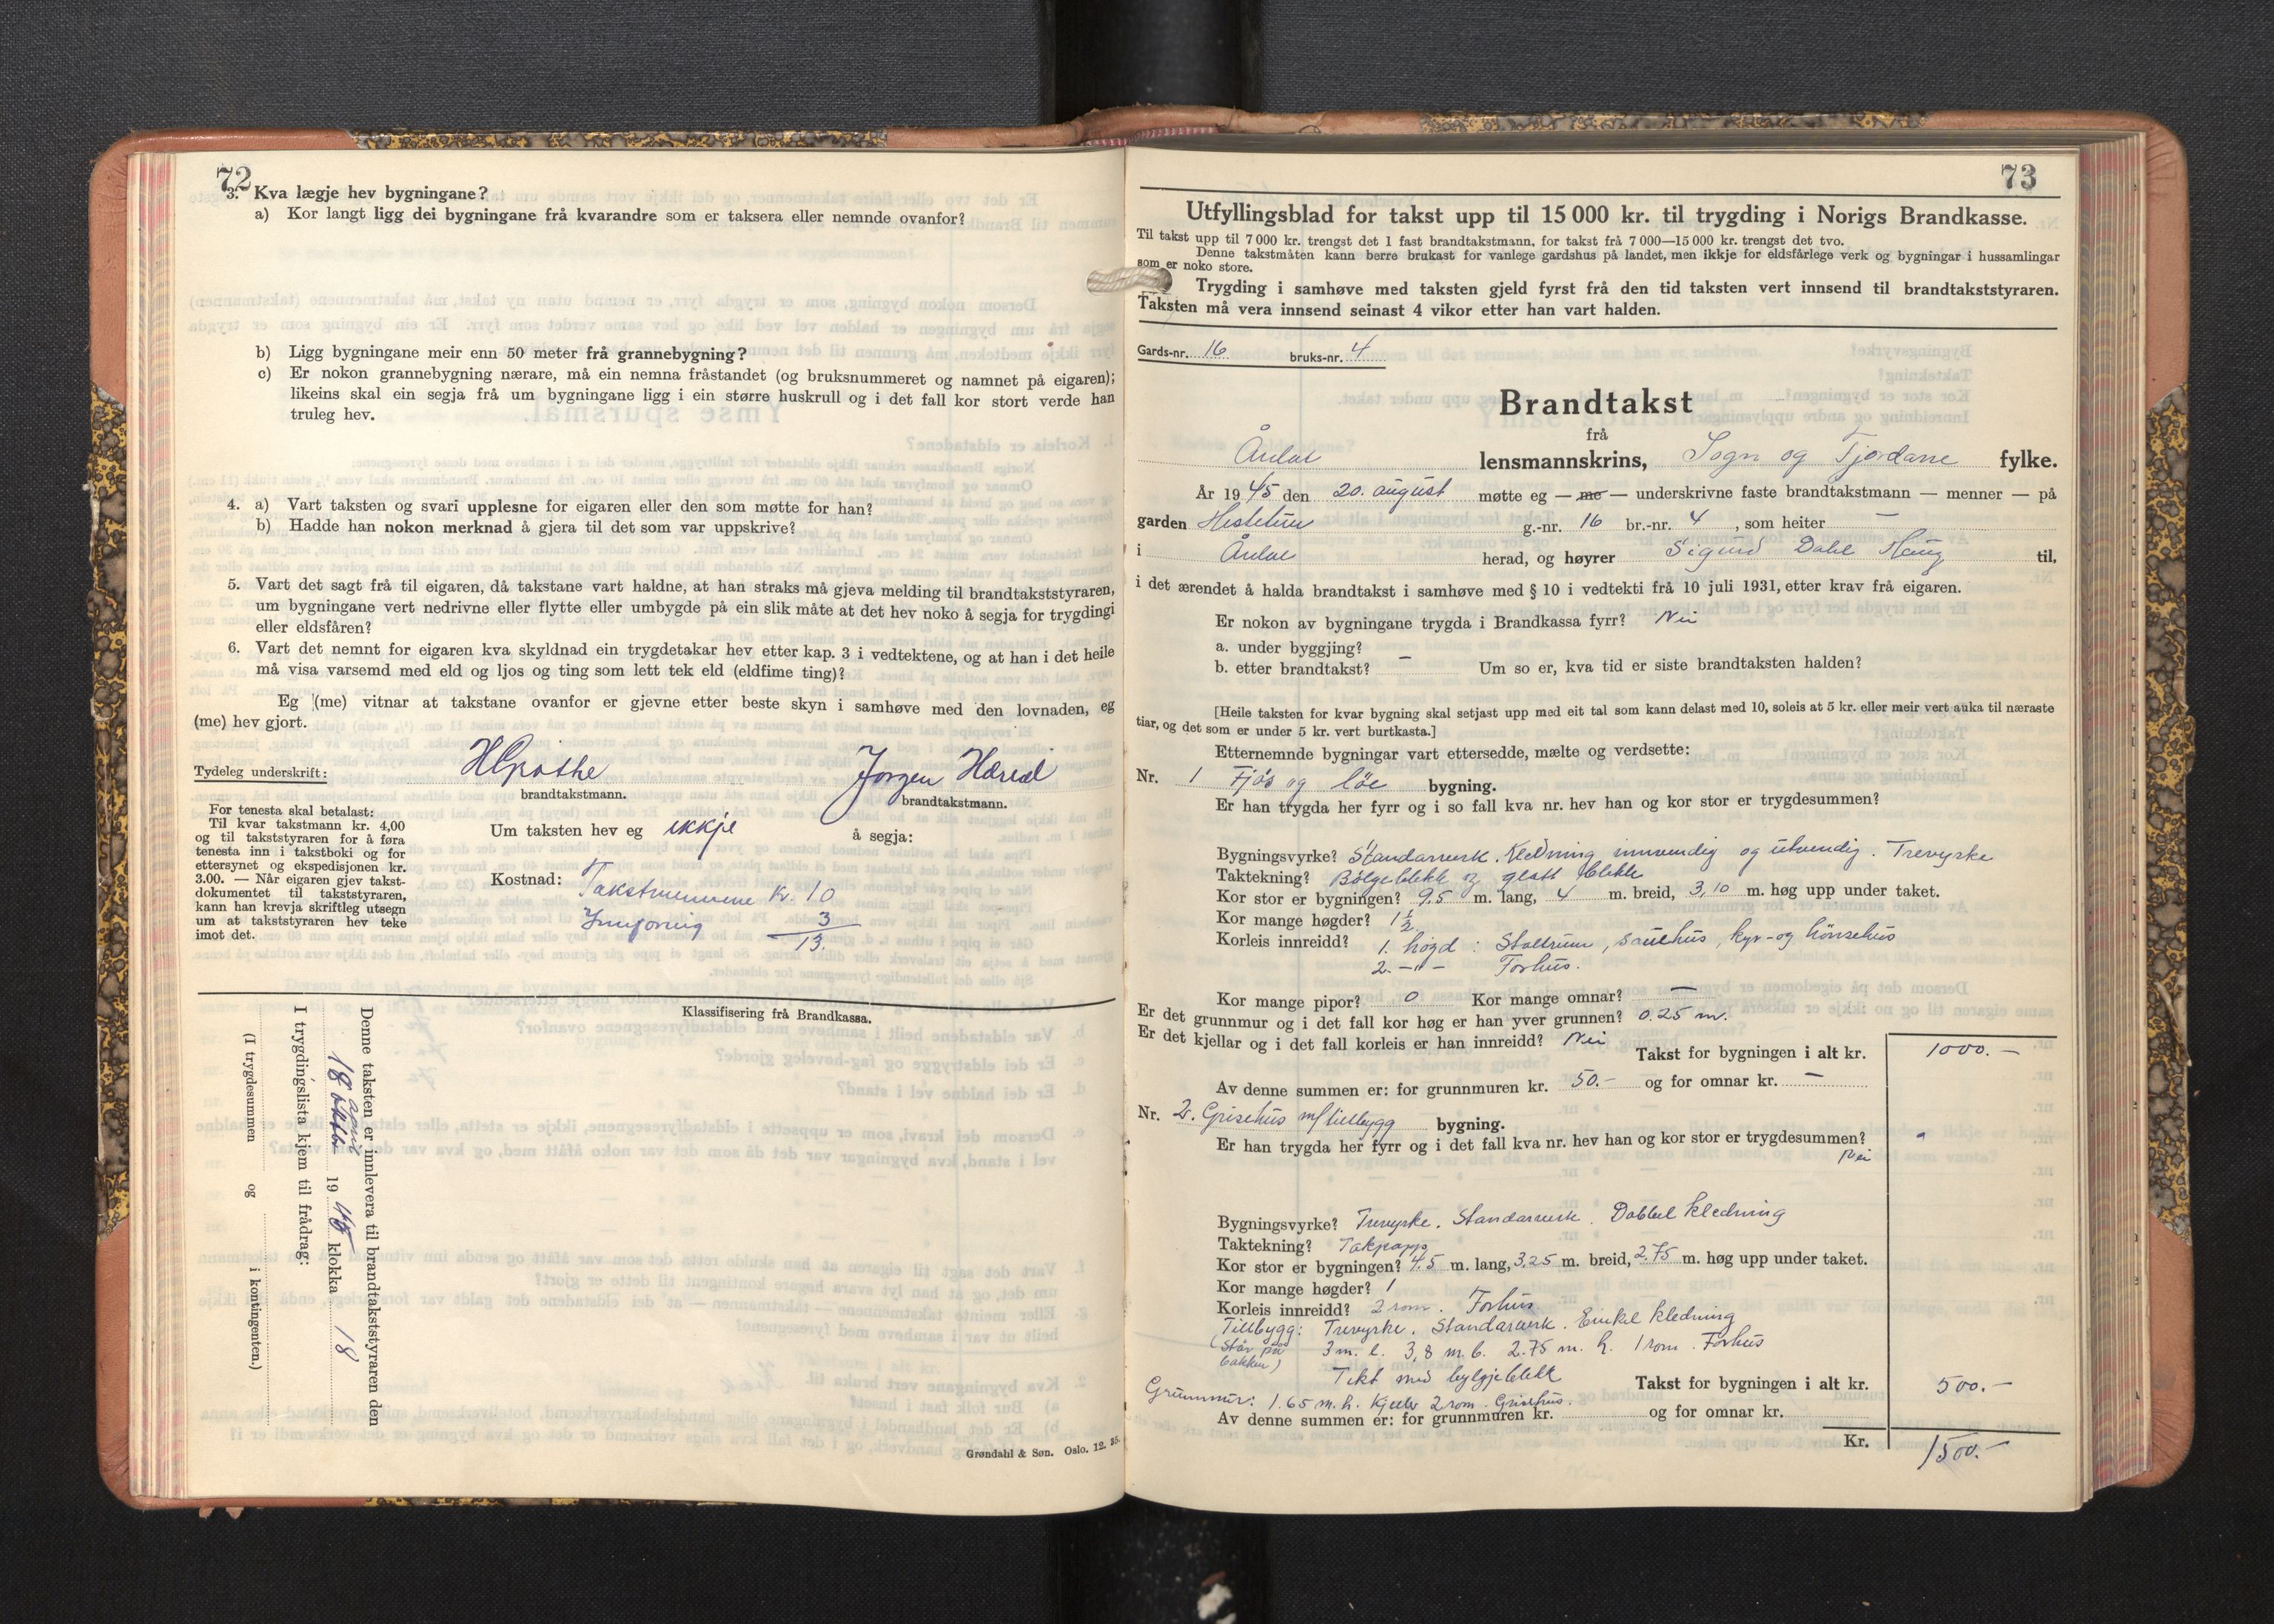 72
3. Kva lægje hev bygningane?
a) Kor langt ligg dei bygningane frå kvarandre som er taksera eller nemnde ovanfor?
b) Ligg bygningane meir enn 50 meter frå grannebygning?
c) Er nokon grannebygning nærare, må ein nemna fråstandet (og bruksnummeret og namnet på eigaren);
likeins skal ein segja frå um bygningane ligg i ein større huskrull og i det fall kor stort verde han
truleg hev.
4. a) Vart taksten og svari upplesne for eigaren eller den som møtte for han?
b) Hadde han nokon merknad å gjera til det som var uppskrive?
5. Vart det sagt frå til eigaren, då takstane vart haldne, at han straks må gjeva melding til brandtakststyraren,
um bygningane vert nedrivne eller flytte eller umbygde på ein slik måte at det hev noko å segja for trygdingi
eller eldsfåren?
6. Vart det nemnt for eigaren kva skyldnad ein trygdetakar hev etter kap. 3 i vedtektene, og at han i det heile
må visa varsemd med eld og ljos og ting som lett tek eld (eldfime ting)?
Eg (me) vitnar at takstane ovanfor er gjevne etter beste skyn i samhøve med den lovnaden, eg
(me) hev gjort.
Tydeleg underskrift: Jørgen
brandtakstmann. brandtakstmann.
For tenesta skal betalast:
Til kvar takstmann kr. 4,00
og til takststyraren for å føra
tenesta inn i takstboki og for
ettersynet og ekspedisjonen kr.
3.00. — Når eigaren gjev takst-
dokumentet til takststyraren,
kann han krevja skriftleg utsegn
um at takststyraren hev teke
imot det.
Um taksten hev eg ikkje å segja:
Kostnad: Takstmennene kr. 10
Innføring 3
13.
Klassifisering frå Brandkassa.
Denne taksten er innlevera til brandtakststyraren den
18 april 19 45 klokka 18
I trygdingslista kjem til frådrag:
(I trygdesummen og i kontingenten.)
Grøndahl & Søn. Oslo. 12. 35.
73
Utfyllingsblad for takst upp til 15 000 kr. til trygding i Norigs Brandkasse.
Til takst upp til 7 000 kr. trengst det 1 fast brandtakstmann, for takst frå 7 000—15 000 kr. trengst det tvo.
Denne takstmåten kann berre brukast for vanlege gardshus på landet, men ikkje for eldsfårlege verk og bygningar i hussamlingar
som er noko store.
Trygding i samhøve med taksten gjeld fyrst frå den tid taksten vert innsend til brandtakststyraren.
Taksten må vera innsend seinast 4 vikor etter han vart halden.
Gards-nr. 16 bruks-nr. 4
Brandtakst
frå
Årdal lensmannskrins, Sogn og Fjordane fylke.
År 1945 den 20. august møtte eg — me — underskrivne faste brandtakstmann — menner — på
garden Hestetun g.-nr. 16 br.-nr. 4, som heiter —
i Årdal herad, og høyrer Sigurd Dahl Haug til,
i det ærendet å halda brandtakst i samhøve med § 10 i vedtekti frå 10 juli 1931, etter krav frå eigaren.
Er nokon av bygningane trygda i Brandkassa fyrr? Nei
a. under byggjing?
b. etter brandtakst? — Um so er, kva tid er siste brandtaksten halden?
[Heile taksten for kvar bygning skal setjast upp med eit tal som kann delast med 10, soleis at 5 kr. eller meir vert auka til næraste
tiar, og det som er under 5 kr. vert burtkasta.]
Etternemnde bygningar vart ettersedde, mælte og verdsette:
Nr. 1 Fjøs og løe bygning.
Er han trygda her fyrr og i so fall kva nr. hev han og kor stor er trygdesummen?
Bygningsvyrke? Standarverk. Kledning innvendig og utvendig. Trevyrke
Taktekning? Bølgeblekk og glatt blekk
Kor stor er bygningen? 9,5 m. lang, 4 m. breid, 3,10 m. høg upp under taket.
Kor mange høgder? 1½
Korleis innreidd? 1. høgd: Stallrum, sauehus, kyr- og hønsehus
2. –"– Forhus.
Kor mange pipor? 0 Kor mange omnar? —
Er det grunnmur og i det fall kor høg er han yver grunnen? 0.25 m.
Er det kjellar og i det fall korleis er han innreidd? Nei
Takst for bygningen i alt kr. 1000.—
Av denne summen er: for grunnmuren kr. 50.- og for omnar kr. —
Nr. 2. Grisehus m/tilbygg bygning.
Er han trygda her fyrr og i det fall kva nr. hev han og kor stor er trygdesummen?
Nei
Bygningsvyrke? Trevyrke. Standarverk. Dobbel kledning
Taktekning? Takpapp
Kor stor er bygningen? 4.5 m. lang, 3.25 m. breid, 2.75 m. høg upp under taket.
Kor mange høgder? 1
Korleis innreidd? 2 rom. Forhus.
Tilbygg: Trevyrke. Standarverk. Einkel kledning
(Står på bakken) 3 m. l. 3,8 m. b. 2.75 m. h. 1 rom. Forhus
Tekt med bylgjeblekk
Takst for bygningen i alt kr. 500.—
Grunnmur: 1.65 m. h. Kjellar 2 rom. Grisehus.
Av denne summen er: for grunnmuren kr. og for omnar kr.
Kr. 1500.—